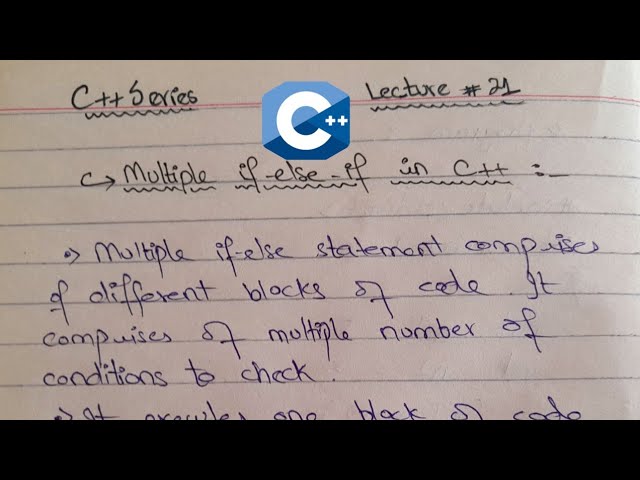 C++ Series
Lecture # 21
C++
Multiple if-else-if in C++ :-
Multiple if-else statement compuises
of different blocks of code. It
compuises of multiple number of
conditions to check.
It executes one block of code